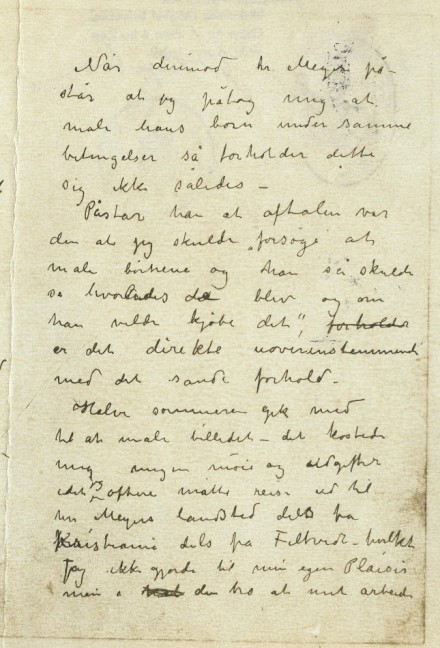 Når derimod hr. Meyer på-
står at jeg påtog mig at
male hans børn under samme
betingelser så forholder dette
sig ikke således –
Påstår han at aftalen var
den at jeg skulde „forsøge at
male børnene og han så skulde
se hvorledes det blev og om
han vilde kjøbe det", forholder
er det direkte uoverensstemmende
med det sande forhold –
Halve sommeren gik med
til at male billedet – det kostede
mig megen møie og udgifter
idet jeg oftere måtte reise ud til
hr Meyers landsted dels fra
Kristiania dels fra Filtvedt – hvilket
jeg ikke gjorde til min egen Plaisir
men i den tro at mit arbeide